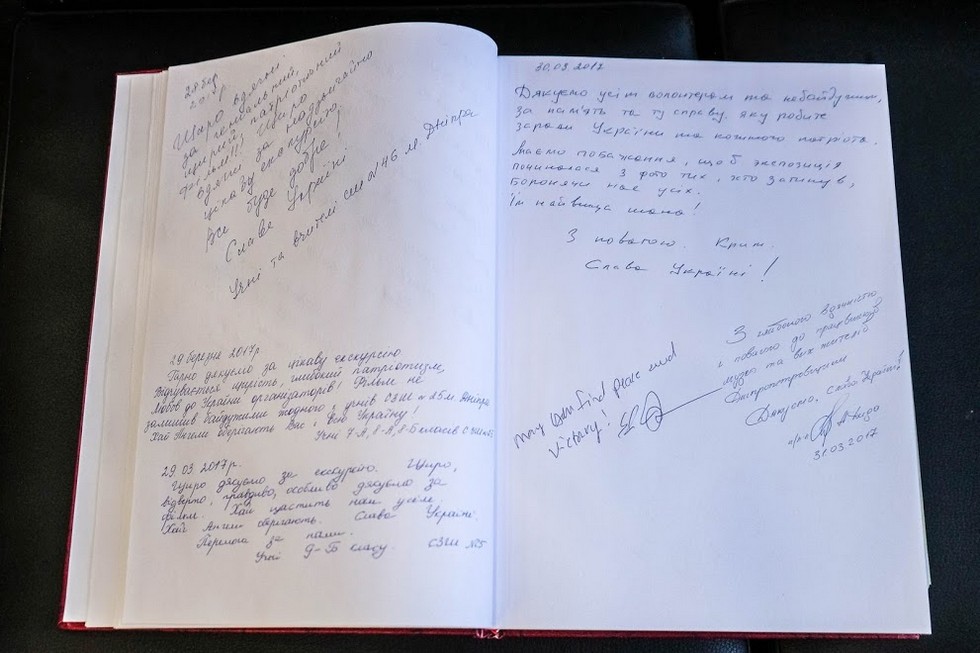 28 бер
2017р
Щиро вдячні
за гениальний,
щирий, патріотичний
фільм!!! Щиро
вдячні за надзвичайно
цікаву екскурсію,
Все буде добре!
Слава Україні!
Учні та вчителі сш №46 м. Дніпра
29 березня 2017р.
Гарно дякуємо за цікаву екскурсію
Відчувається щирість, глибокий патріотизм,
любов до України організаторів! Фільм не
залишив байдужими жодного з учнів СЗШ №25 м. Дніпра
Хай Янголи оберігають Вас і всю Україну!
Учні 7-А, 8-А, 8-Б класів
29.03 2017р.
Щиро дякуємо за екскурсію. Щиро,
відверто, правдиво, особливо дякуємо за
фільм. Хай щастить нам усім.
Хай Ангели оберігають. Слава Україні.
Перемога за нами.
Учні 9-Б класу. СЗШ
30.03.2017
Дякуємо усім волонтерам та небайдужим,
за пам'ять та ту справу, яку робите
заради України та кожного патріота.
Маємо побажання, щоб экспозиція
починалася з фото тих, хто загинув,
боронячи нас усіх.
Їм найвища шана!
З повагою. Крим.
Слава Україні!
З глибокою вдячністю
і повагою до працівників
музею та всіх жителів
Дніпропетровщини
Дякуємо, слава Україні!
31.03.2017
May you find peace and
victory!